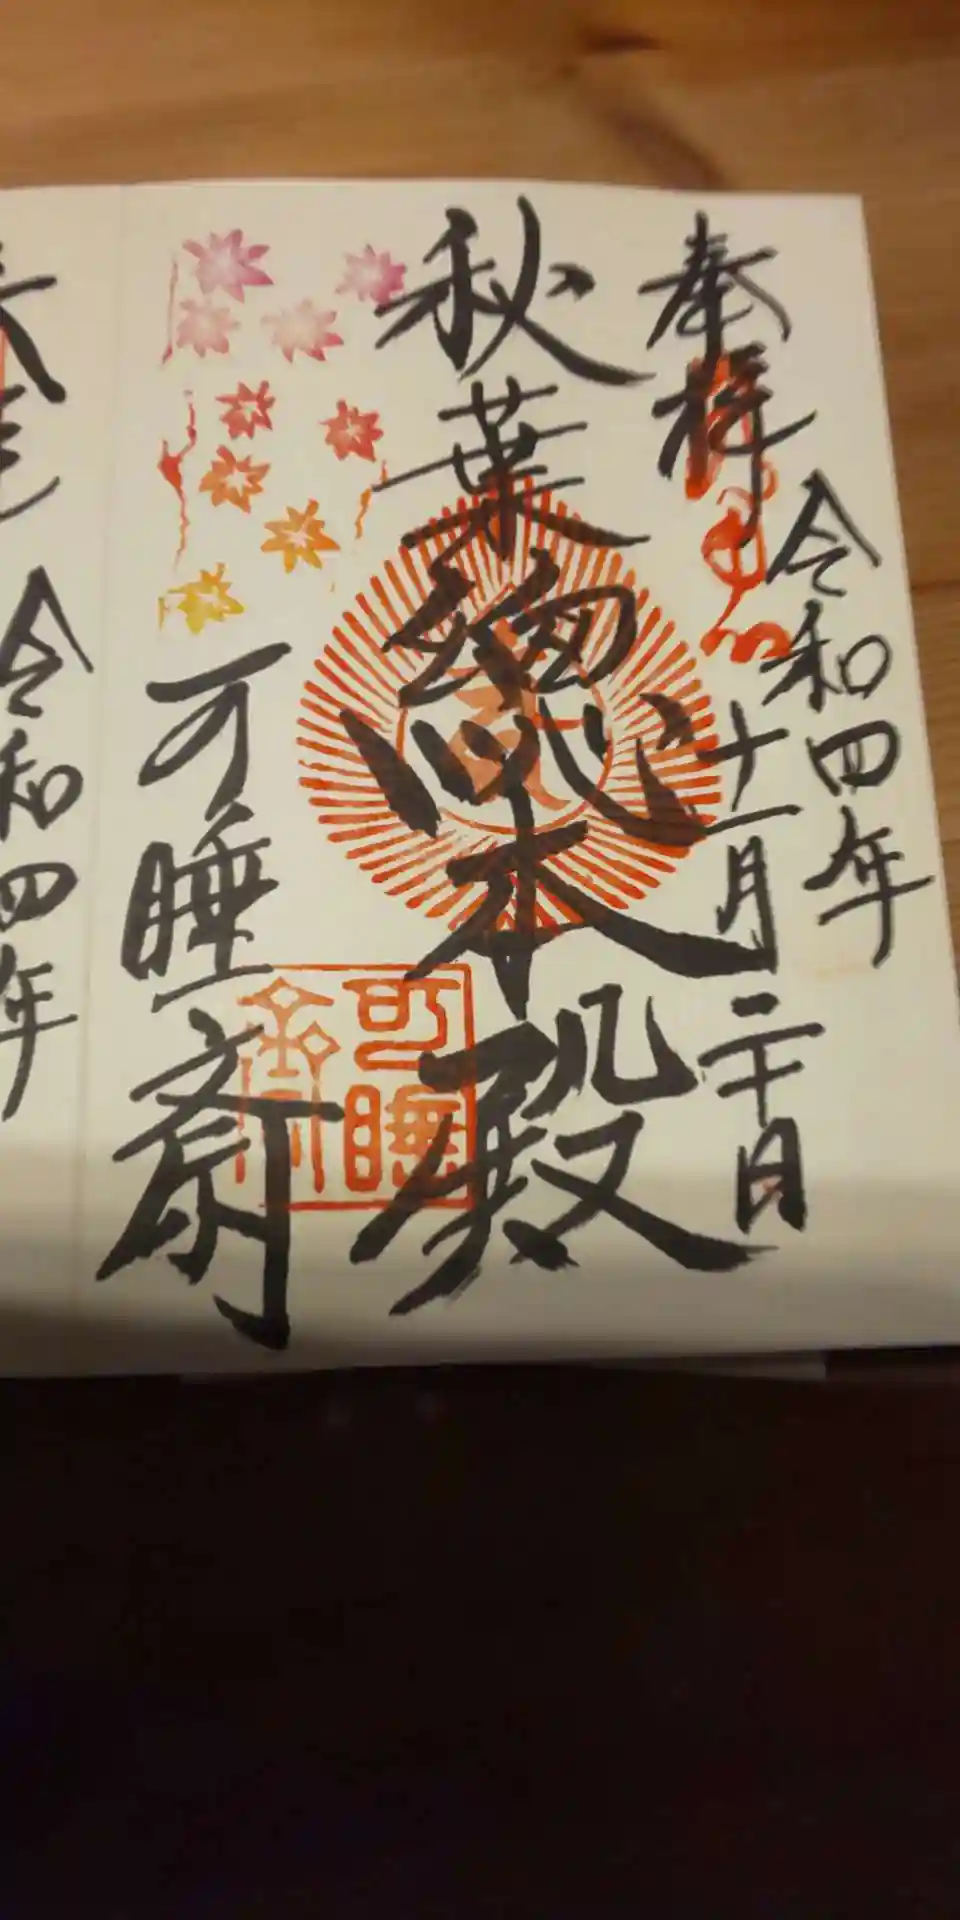 奉拝
令和四年
十一月二十日
秋葉總本殿
可睡斎
可睡斎
令和四年